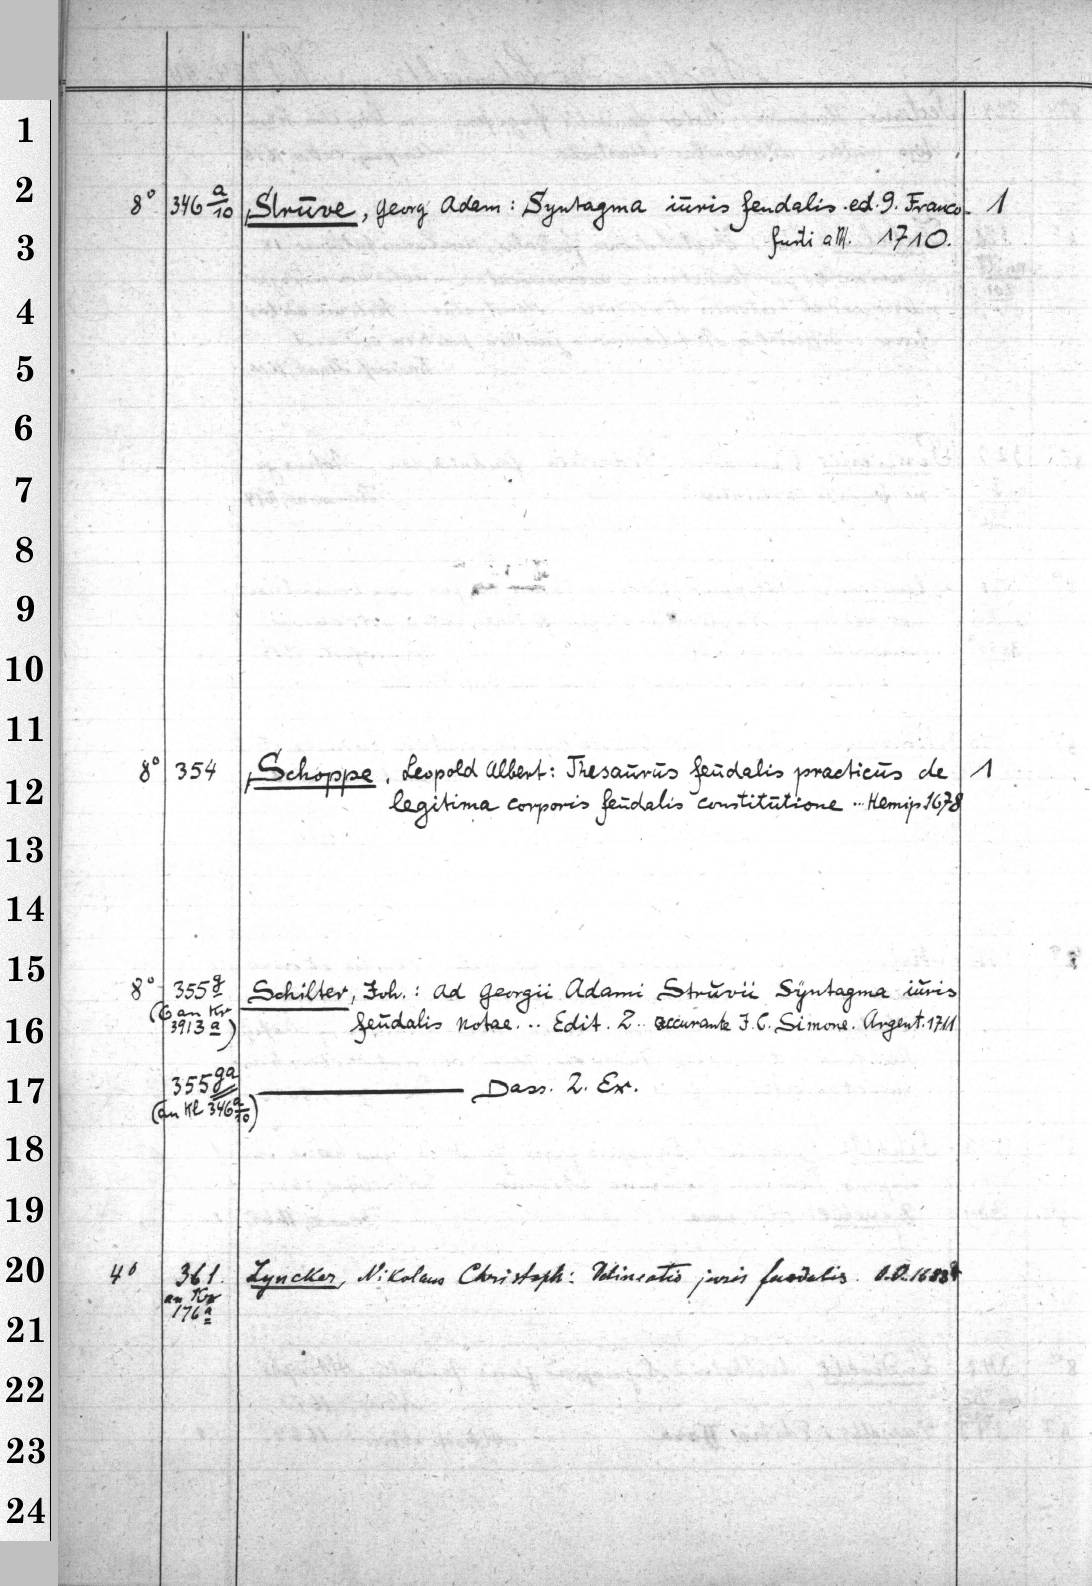 1
2
8° 346 a/10 Strūve, Georg Adam: Syntagma iūris feudalis. ed. 9. Franco- 1
3
furti a/M. 1710.
4
5
6
7
8
9
10
11
8° 354 Schoppe, Leopold Albert: Thesaūrūs feūdalis practicūs de 1
12
legitima corporis feūdalis constitūtione ... 1678
13
14
15
8° 355 g Schilter, Joh.: Ad Georgii Adami Strūvii Syntagma iūris
(6 an Kr
16
3913 a) feūdalis notae... Edit. 2.. accurante J. C. Simone. Argent. 1711
17
355 ga Dass. 2. Ex.
(an Kl 346 a/10)
18
19
20
4° 361. Lyncker, Nikolaus Christoph: juris feudalis.
an Kr
176 a
21
22
23
24